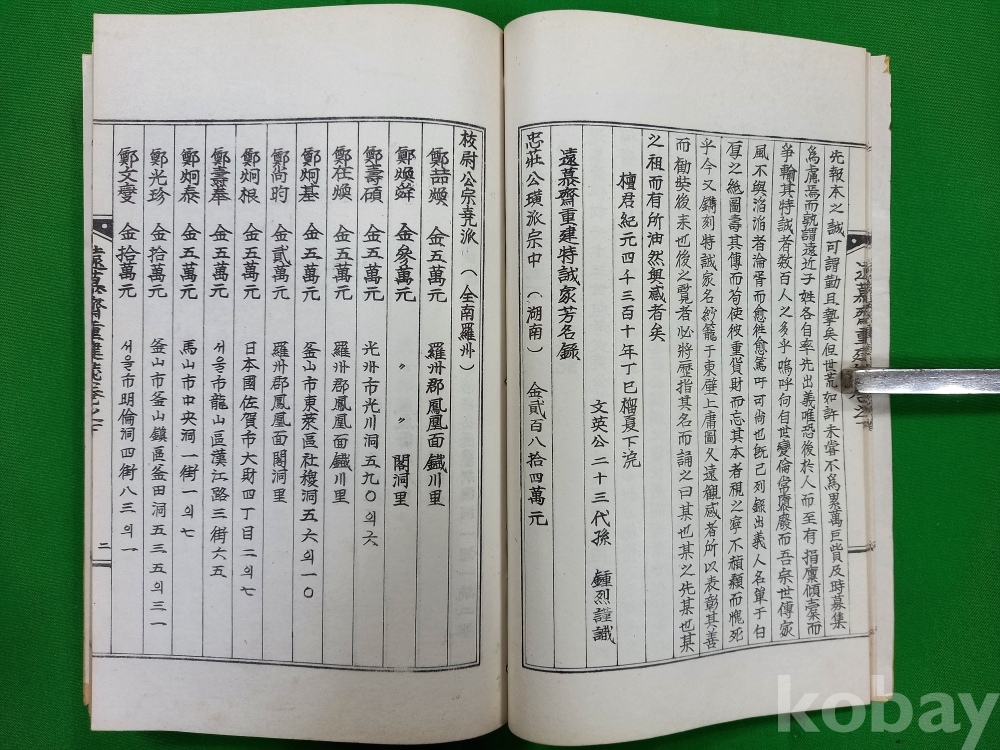 先報本之誠可謂勤且摯矣但世荒如許未嘗不爲累萬巨貲及時募集
爲慮焉而孰謂遠近子姓各自率先出義唯恐後於人而至有捐廩傾橐而
爭輸其特誠者數百人之多乎嗚呼向自世變倫常隳廢而吾宗世傳家
風不與滔滔者淪胥而愈往愈篤吁可尙也旣已列錄出義人名單于右
厚之絶圖壽其傳而苟使彼重貨財而忘其本者視之寧不頳顙而愧死
乎今又鐫刻特誠家名紗籠于東壁上庸圖久遠觀感者所以表彰其善
而勸奬後來也後之覽者必將歷指其名而誦之曰某也某之先某也某
之祖而有所油然興感者矣
檀君紀元四千三百十年丁巳榴夏下浣
文英公二十三代孫 鍾烈謹識
遠慕齋重建特誠家芳名錄
忠莊公璜派宗中 (湖南) 金貳百八拾四萬元
校尉公宗堯派 (全南羅州)
鄭喆煥 金五萬元 羅州郡鳳凰面鐵川里
鄭煥舜 金參萬元 〃 〃 閣洞里
鄭壽碩 金五萬元 光州市光川洞五九0의六
鄭在煥 金五萬元 羅州郡鳳凰面鐵川里
鄭炯基 金五萬元 釜山市東萊區社稷洞五六의一0
鄭尚昀 金貳萬元 羅州郡鳳凰面閣洞里
鄭炯根 金五萬元 日本國佐賀市大財四丁目二의七
鄭壽奉 金五萬元 서울市龍山區漢江路三街六五
鄭炯泰 金五萬元 馬山市中央洞一街一의七
鄭光珍 金拾萬元 釜山市釜山鎭區釜田洞五三五의三一
鄭文燮 金拾萬元 서울市明倫洞四街八三의一
三